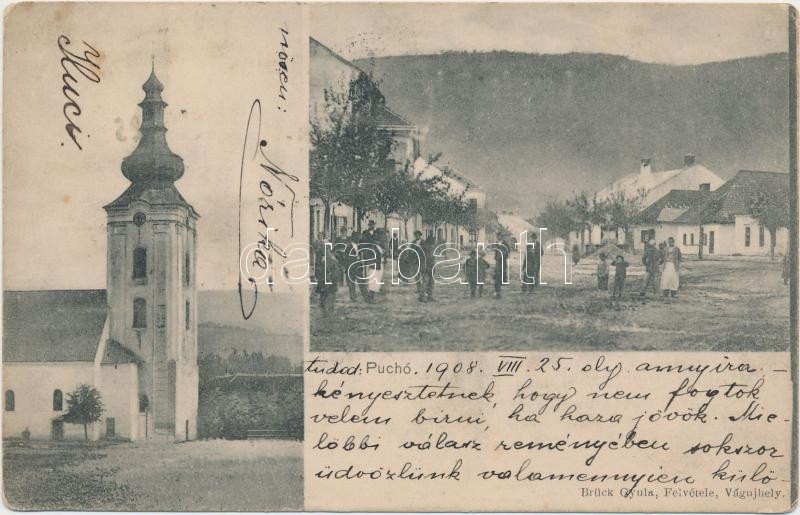 Kuci.
nösen:
Nórika
tudod: Puchó. 1908. VIII. 25. oly annyira -
kényesztetnek, hogy nem fogtok
velem birni, ha haza jövök. Mie-
lőbbi válasz reményében sokszor
üdvözlünk valamennyien külö-
Brück Gyula, Felvétele, Vágujhely.
darabanth.com